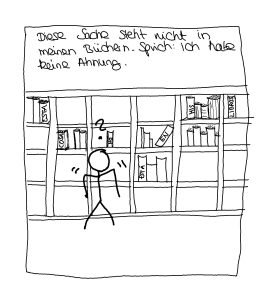 Diese Sache steht nicht in
meinen Büchern. Sprich: Ich habe
keine Ahnung.
?